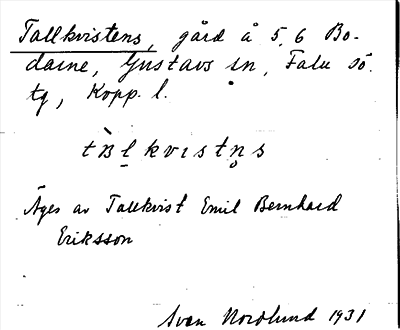 Tallkvistens, gård å 5, 6 Bo-
darne, Gustavs sn, Falu sö.
tg, Kopp. l.
tàḷkvistn̥s
Äges av Tallkvist Emil Bernhard
Eriksson
Sven Nordlund 1931